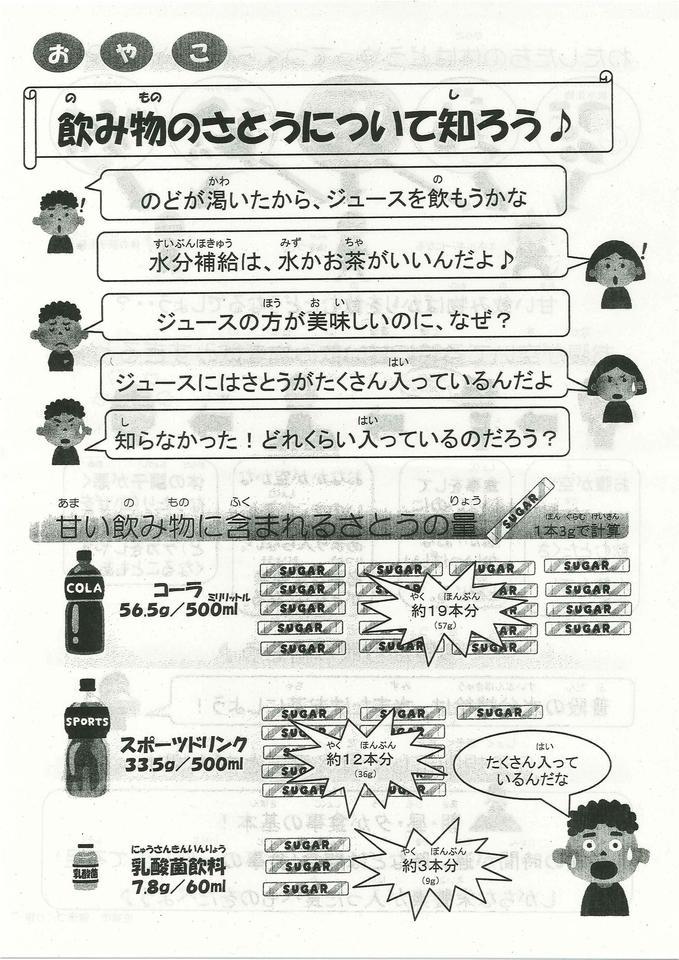 おやこ
飲み物のさとうについて知ろう♪
のどが渇いたから、ジュースを飲もうかな
水分補給は、水かお茶がいいんだよ♪
ジュースの方が美味しいのに、なぜ？
ジュースにはさとうがたくさん入っているんだよ
知らなかった！どれくらい入っているのだろう？
甘い飲み物に含まれるさとうの量
SUGAR
1本3gで計算
COLA
コーラ
56.5g／500ml
SUGAR SUGAR SUGAR SUGAR
SUGAR SUGAR
SUGAR SUGAR
SUGAR SUGAR
SUGAR SUGAR SUGAR
約19本分
(57g)
SPORTS
スポーツドリンク
33.5g／500ml
SUGAR SUGAR SUGAR
約12本分
(36g)
たくさん入って
いるんだな
乳酸菌
乳酸菌飲料
7.8g／60ml
SUGAR
SUGAR
SUGAR
約3本分
(9g)